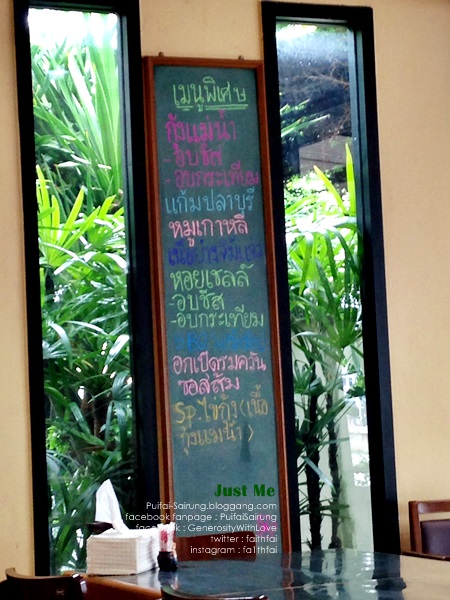 เมนูพิเศษ
กุ้งแม่น้ำ
- อบชีส
- อบกระเทียม
แก้มปลาบุรี
หมูเกาหลี
หอยเชลล์
- อบชีส
- อบกระเทียม
อกเป็ดรมควัน
ซอสส้ม
Sp.ไข่กุ้ง (เนื้อ
กุ้งแม่น้ำ)
Just Me
Puifai-Sairung.bloggang.com
facebook fanpage : PuifaiSairung
facebook : GenerosityWithLove
twitter : faithfai
instagram : fa1thfai